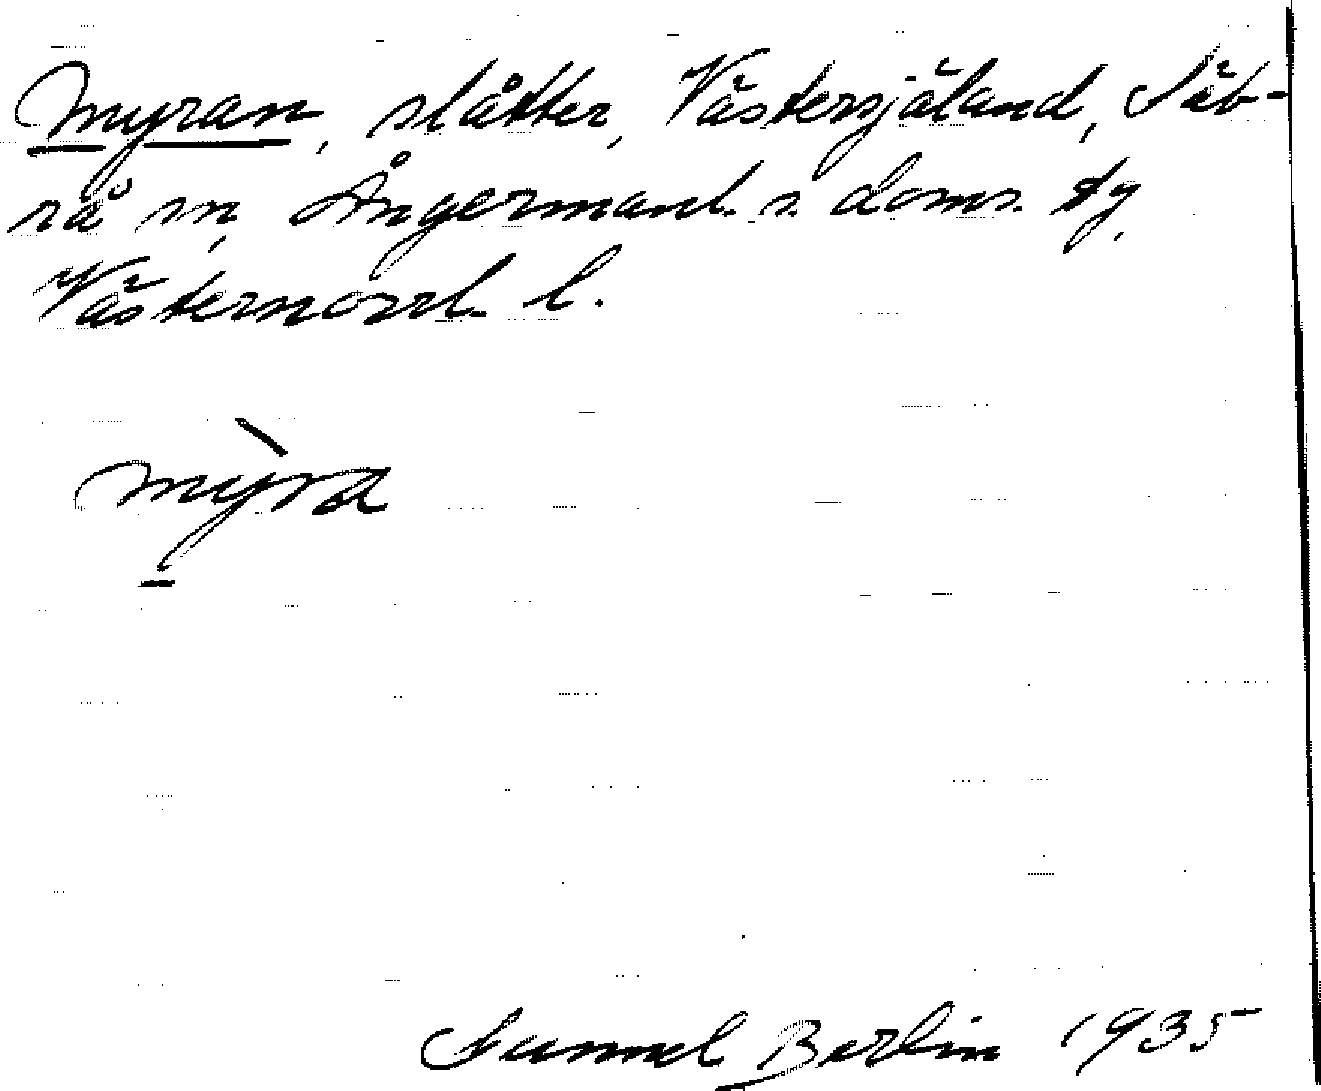 Myran, slåtter, Västersjäland, Säb-
rå sn, Ångermanl. s. doms. tg,
Västernorrl. l.
mỳra
Gunnel Berlin 1935